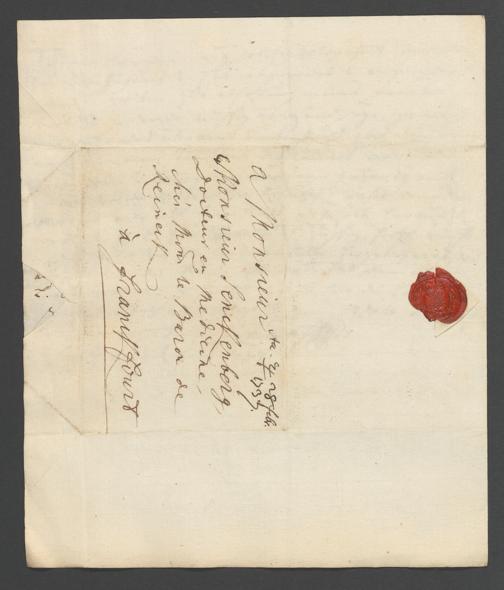 a Monsieur
Monsieur Senckenberg
Docteur en Medicine,
chés Mons. le Baron de
Reineck
à Francffourt
28 feb.